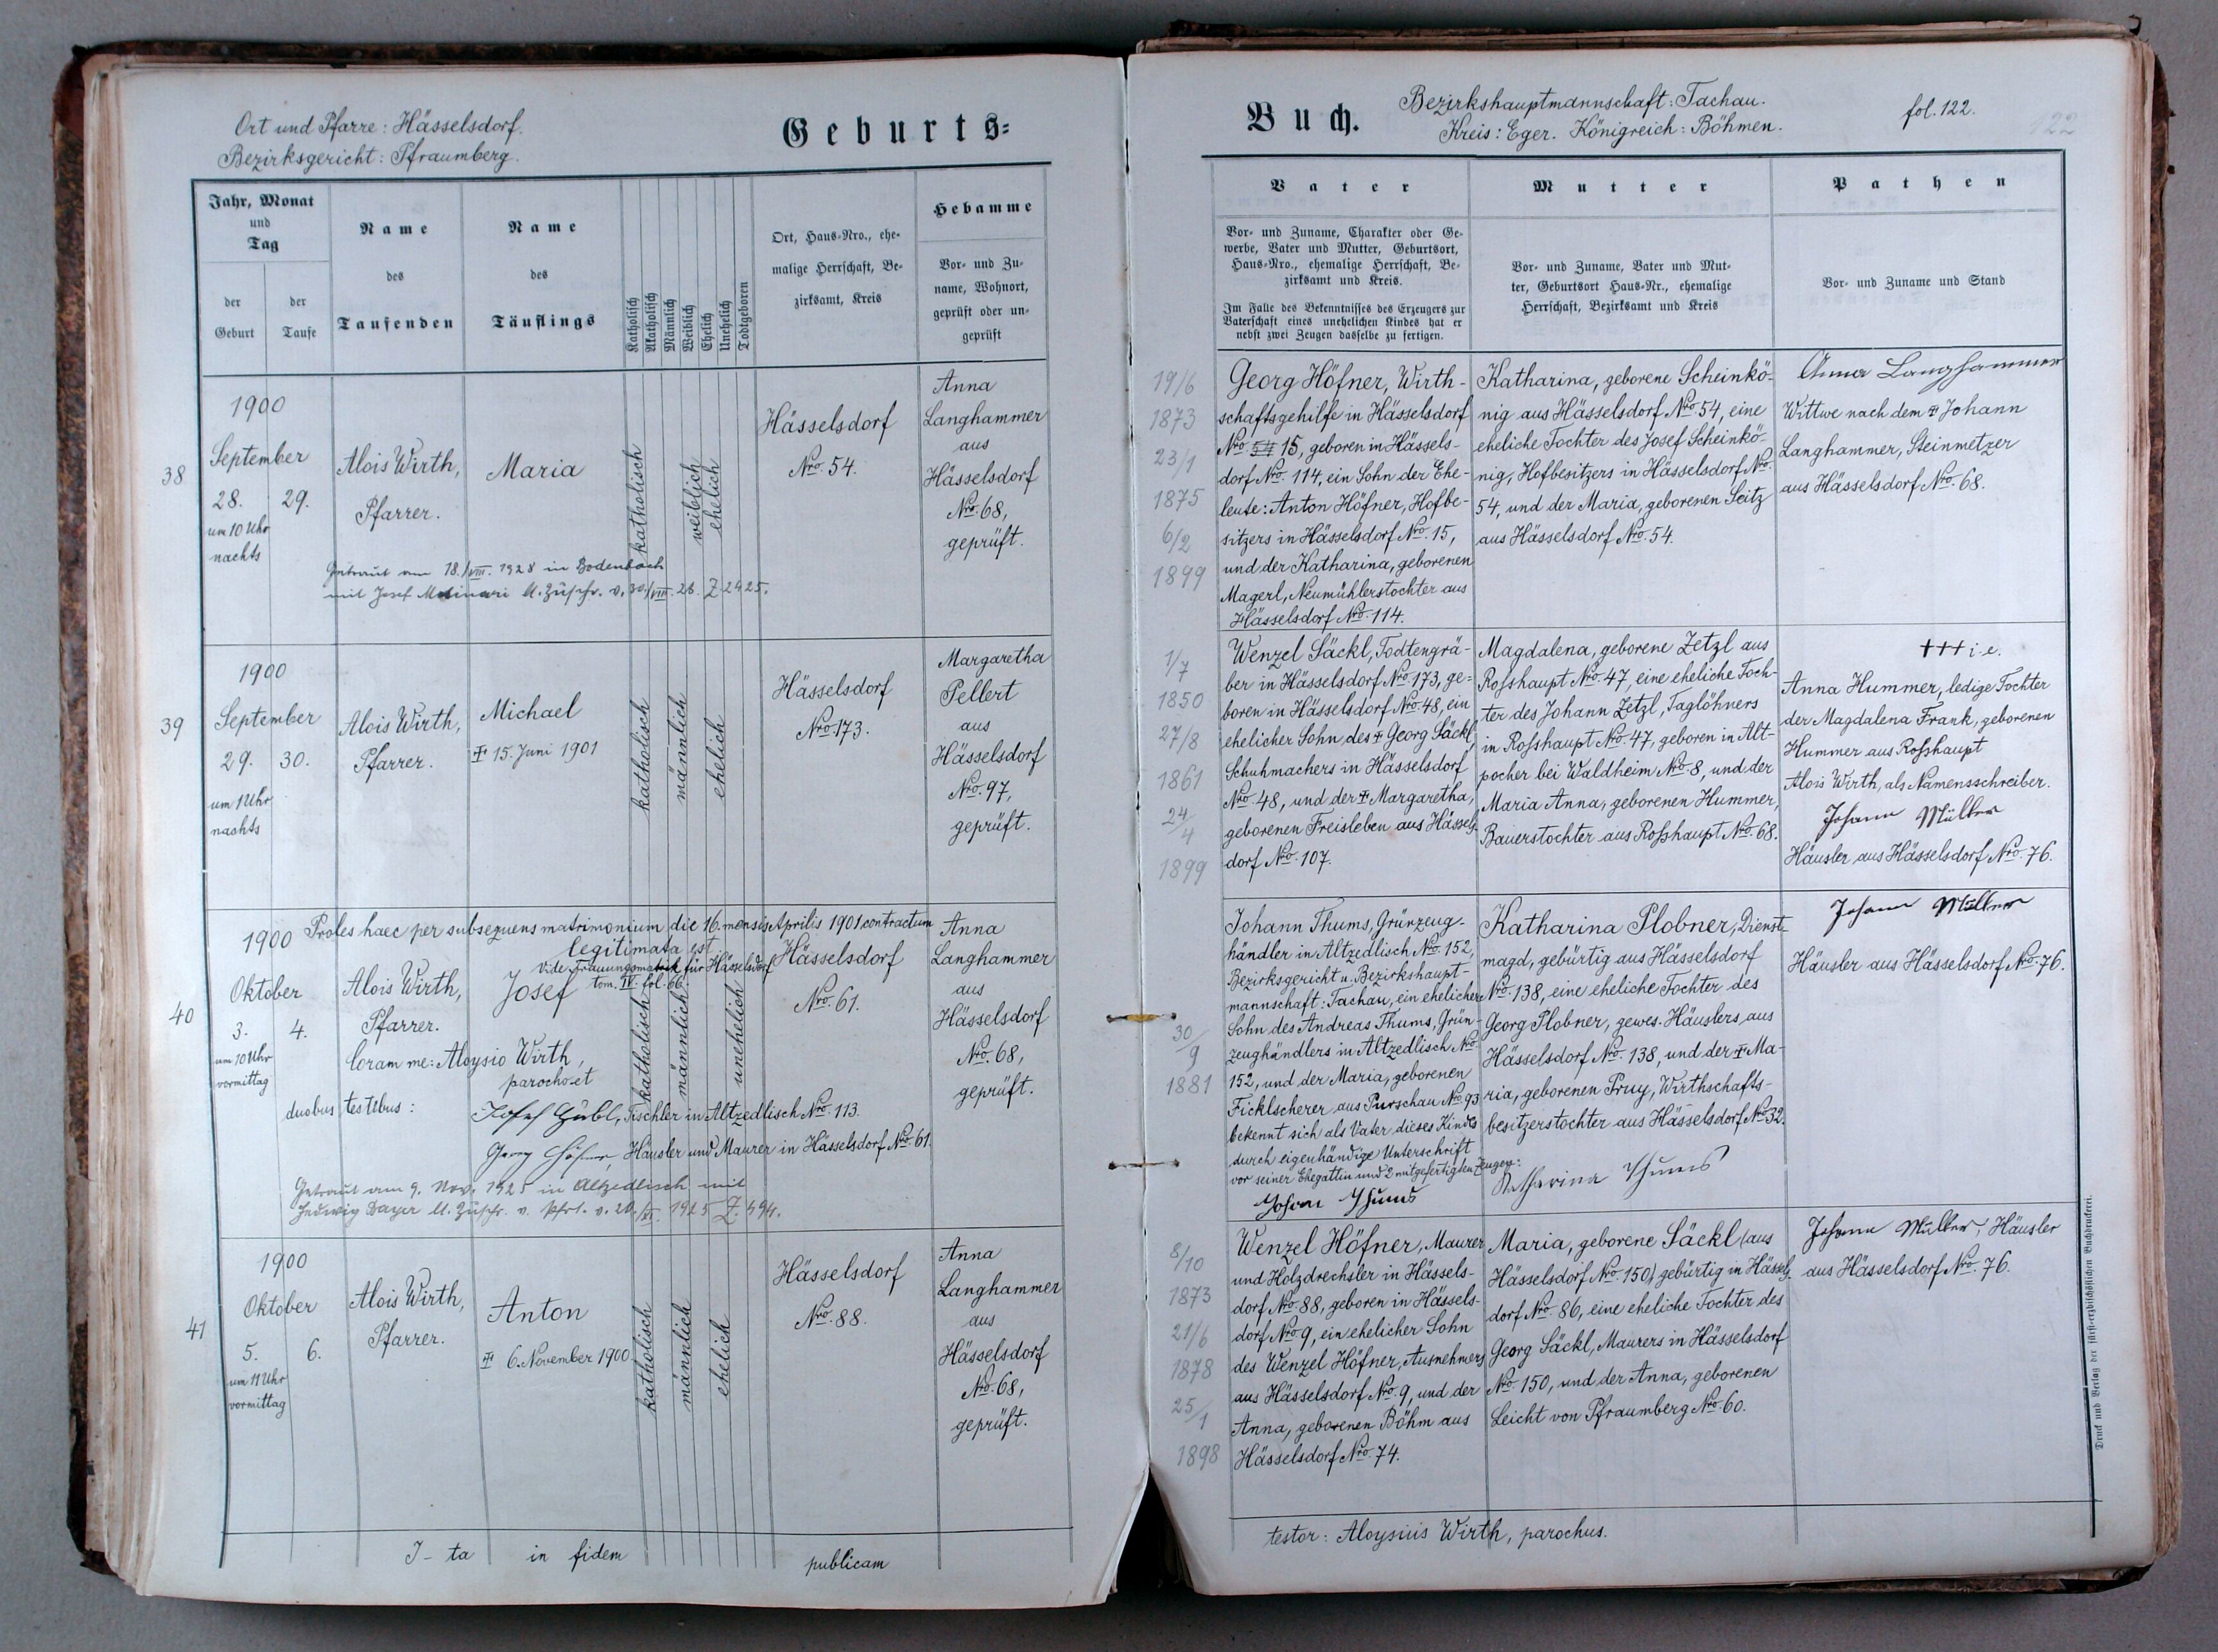 Ort und Pfarre: Hässelsdorf.
Bezirksgericht: Pfraumberg.
Geburts=
Jahr, Monat
und
Tag
der
Geburt
der
Taufe
Name
des
Taufenden
Name
des
Täuflings
Katholisch
Akatholisch
Männlich
Weiblich
Ehelich
Unehelich
Todtgeboren
Ort, Haus=Nro., ehe=
malige Herrschaft, Be=
zirksamt, Kreis
Hebamme
Vor= und Zu=
name, Wohnort,
geprüft oder un=
geprüft
38
1900
September
28. 29.
um 10 Uhr
nachts
Alois Wirth,
Pfarrer.
Maria
katholisch
weiblich
ehelich
Hässelsdorf
Nro. 54.
Anna
Langhammer
aus
Hässelsdorf
Nro. 68,
geprüft.
Getraut am 18./VIII. 1928 in Bodenbach
mit Josef Molinari lt. Zuschr. v. 30/VIII. 28. Z 2425.
39
1900
September
29. 30.
um 1 Uhr
nachts
Alois Wirth,
Pfarrer.
Michael
15. Juni 1901
katholisch
männlich
ehelich
Hässelsdorf
Nro. 173.
Margaretha
Pellert
aus
Hässelsdorf
Nro. 97,
geprüft.
40
1900
Proles haec per subsequens matrimonium die 16. mensis Aprilis 1901 contractum
legitimata est
vide Trauungsmatrik für Hässelsdorf
tom. IV. fol. 66.
Oktober
3. 4.
um 10 Uhr
vormittag
Alois Wirth,
Pfarrer.
Josef
katholisch
männlich
unehelich
Hässelsdorf
Nro. 61.
Anna
Langhammer
aus
Hässelsdorf
Nro. 68,
geprüft.
Coram me: Aloysio Wirth,
parocho et
duobus testibus:
Josef Hübl, Tischler in Altzedlisch Nro. 113.
Georg Höfner, Häusler und Maurer in Hässelsdorf Nro. 61.
Getraut am 9. Nov. 1925 in Altzedlisch mit
Hedwig Bayer lt. Zuschr. v. Pfrt. v. 20./XI. 1925 Z. 494.
41
1900
Oktober
5. 6.
um 11 Uhr
vormittag
Alois Wirth,
Pfarrer.
Anton
6. November 1900
katholisch
männlich
ehelich
Hässelsdorf
Nro. 88.
Anna
Langhammer
aus
Hässelsdorf
Nro. 68,
geprüft.
I-ta in fidem publicam
Buch.
Bezirkshauptmannschaft: Tachau.
Kreis: Eger. Königreich: Böhmen.
fol. 122.
122
Vater
Vor= und Zuname, Charakter oder Ge=
werbe, Vater und Mutter, Geburtsort,
Haus=Nro., ehemalige Herrschaft, Be=
zirksamt und Kreis.
Im Falle des Bekenntnisses des Erzeugers zur
Vaterschaft eines unehelichen Kindes hat er
nebst zwei Zeugen dasselbe zu fertigen.
Mutter
Vor= und Zuname, Vater und Mut=
ter, Geburtsort Haus=Nr., ehemalige
Herrschaft, Bezirksamt und Kreis
Pathen
Vor= und Zuname und Stand
19/6
1873
23/1
1875
6/2
1899
Georg Höfner, Wirth-
schaftsgehilfe in Hässelsdorf
Nro. 54 15, geboren in Hässels-
dorf Nro. 114, ein Sohn der Ehe-
leute: Anton Höfner, Hofbe-
sitzers in Hässelsdorf Nro. 15,
und der Katharina, geborenen
Magerl, Neumühlerstochter aus
Hässelsdorf Nro. 114.
Katharina, geborene Scheinkö-
nig aus Hässelsdorf Nro. 54, eine
eheliche Tochter des Josef Scheinkö-
nig, Hofbesitzers in Hässelsdorf Nro.
54, und der Maria, geborenen Seitz
aus Hässelsdorf Nro. 54.
Anna Langhammer
Wittwe nach dem ✝ Johann
Langhammer, Steinmetzer
aus Hässelsdorf Nro. 68.
1/7
1850
27/8
1861
24/4
1899
Wenzel Säckl, Todtengrä-
ber in Hässelsdorf Nro. 173, ge-
boren in Hässelsdorf Nro. 48, ein
ehelicher Sohn des ✝ Georg Säckl,
Schuhmachers in Hässelsdorf
Nro. 48, und der ✝ Margaretha,
geborenen Freisleben aus Hässels-
dorf Nro. 107.
Magdalena, geborene Zetzl aus
Roßhaupt Nro. 47, eine eheliche Toch-
ter des Johann Zetzl, Taglöhners
in Roßhaupt Nro. 47, geboren in Alt-
pocher bei Waldheim Nro. 8, und der
Maria Anna, geborenen Hummer,
Bauerstochter aus Roßhaupt Nro. 68.
✝✝✝ i. e.
Anna Hummer, ledige Tochter
der Magdalena Frank, geborenen
Hummer aus Roßhaupt
Alois Wirth, als Namensschreiber.
Johann Müller
Häusler aus Hässelsdorf Nro. 76.
30/9
1881
Johann Thums, Grünzeug-
händler in Altzedlisch Nro. 152,
Bezirksgericht u. Bezirkshaupt-
mannschaft: Tachau, ein ehelicher
Sohn des Andreas Thums, Grün-
zeughändlers in Altzedlisch Nro.
152, und der Maria, geborenen
Ficklscherer aus Purschau Nro. 93
bekennt sich als Vater dieses Kindes
durch eigenhändige Unterschrift
vor seiner Ehegattin und 2 mitgefertigten Zeugen:
Johan Thums
Katharina Plobner, Dienst-
magd, gebürtig aus Hässelsdorf
Nro. 138, eine eheliche Tochter des
Georg Plobner, gewes. Häuslers aus
Hässelsdorf Nro. 138, und der ✝ Ma-
ria, geborenen Pruy, Wirthschafts-
besitzerstochter aus Hässelsdorf Nro. 32.
Katharina Thums
Johann Müller
Häusler aus Hässelsdorf Nro. 76.
8/10
1873
21/6
1878
25/1
1898
Wenzel Höfner, Maurer
und Holzdrechsler in Hässels-
dorf Nro. 88, geboren in Hässels-
dorf Nro. 9, ein ehelicher Sohn
des Wenzel Höfner, Ausnehmers
aus Hässelsdorf Nro. 9, und der
Anna, geborenen Böhm aus
Hässelsdorf Nro. 74.
Maria, geborene Säckl (aus
Hässelsdorf Nro. 150) gebürtig in Hässels-
dorf Nro. 86, eine eheliche Tochter des
Georg Säckl, Maurers in Hässelsdorf
Nro. 150, und der Anna, geborenen
Leicht von Pfraumberg Nro. 60.
Johann Müller, Häusler
aus Hässelsdorf Nro. 76.
testor: Aloysius Wirth, parochus.
Druck und Verlag der fürst=erzbischöflichen Buchdruckerei.